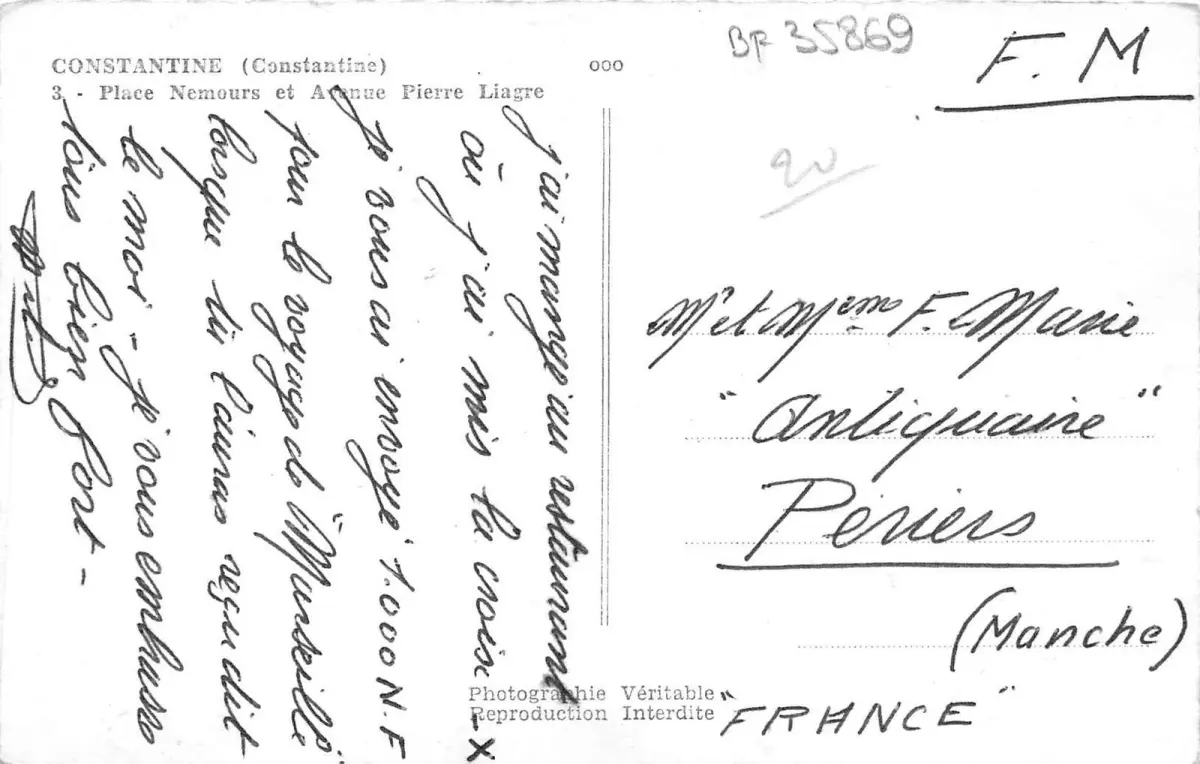 CONSTANTINE (Constantine)
3 - Place Nemours et Avenue Pierre Liagre
ooo
BF 35869
F. M
20
J'ai mangé au restaurant
où j'ai mis la croix - X
Je vous ai envoyé 1.000 N.F
pour le voyage de "Marseille"
lorsque tu l'auras reçu dit
le moi - je vous embrasse
tous bien fort -
Mr et Meme F. Marie
"Antiquaire"
Périers
(Manche)
"FRANCE"
Photographie Véritable
Reproduction Interdite